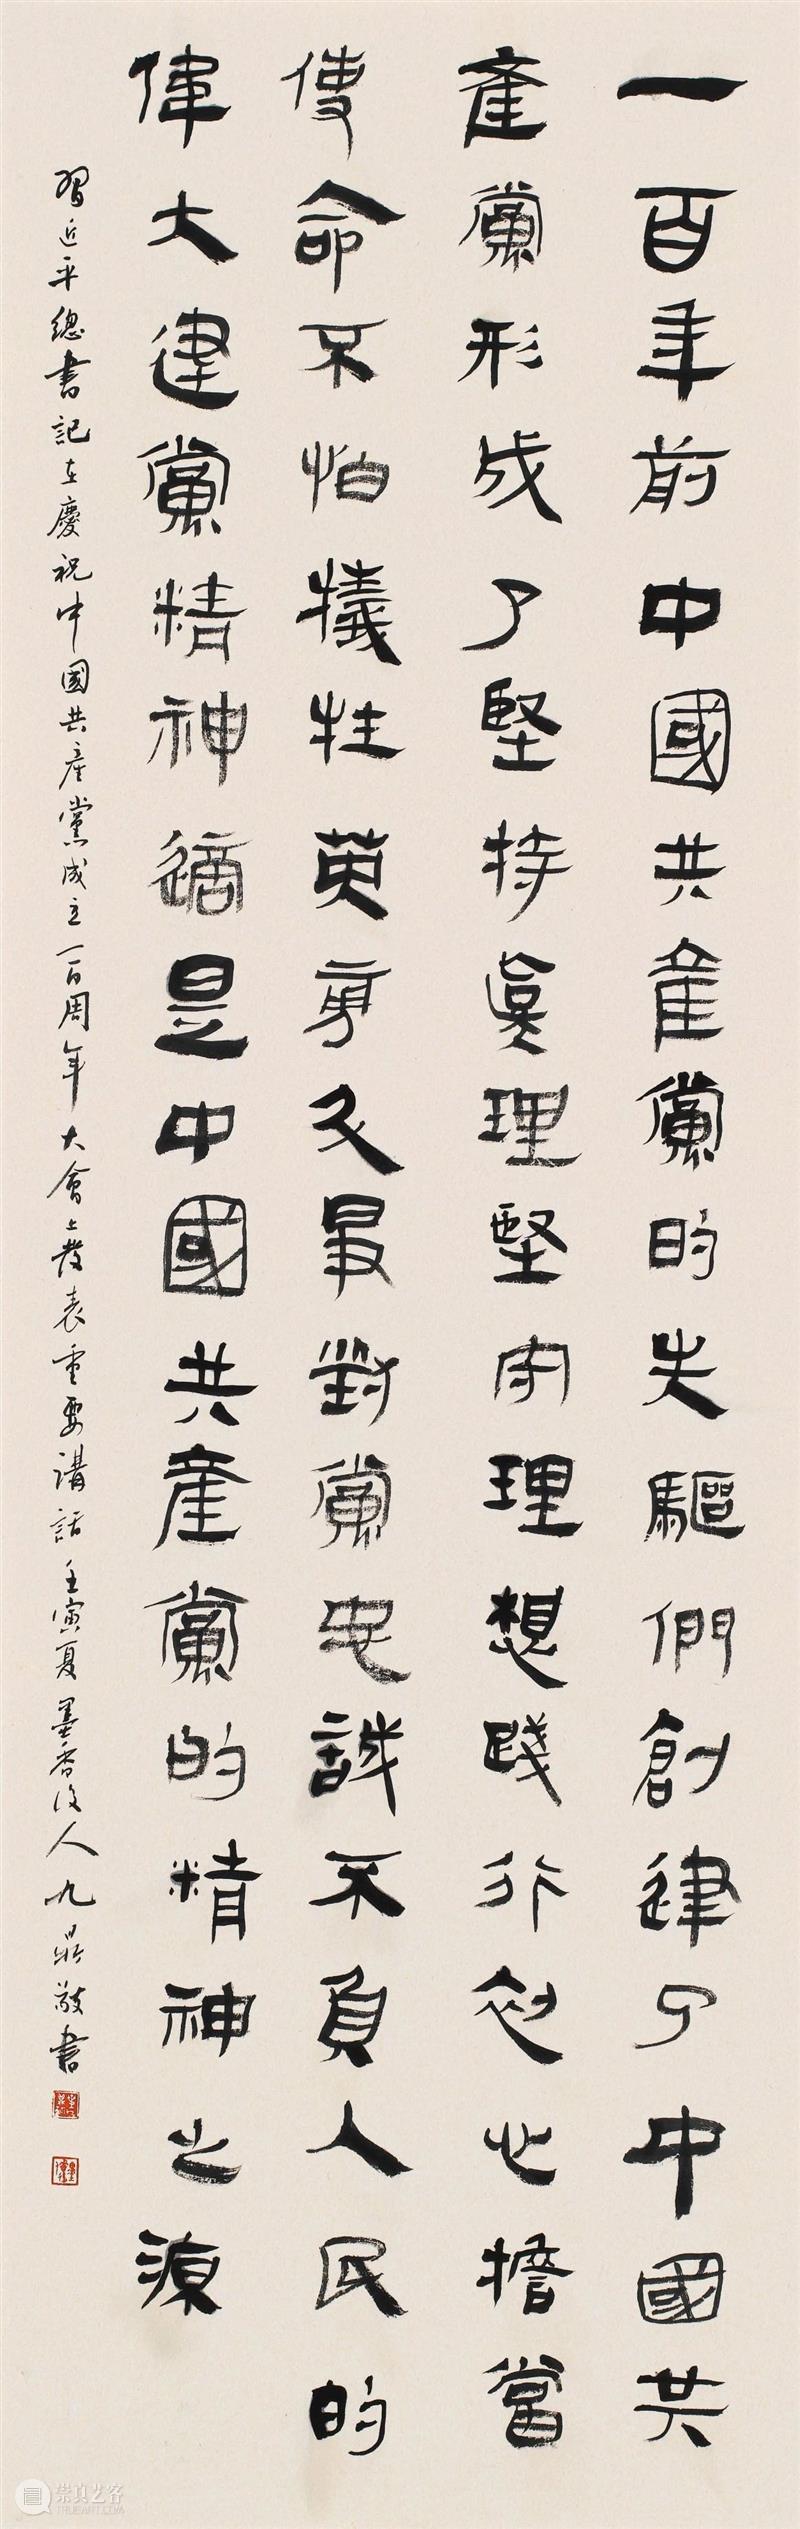 一百年前中國共產黨的先驅們創建了中國共
產黨形成了堅持真理堅守理想踐行初心擔當
使命不怕犧牲英對黨忠誠不負人民的
偉大建黨精神這是中國共產黨的精神之源
習近平總書記在慶祝中國共產黨成立一百周年大會上發表重要講話壬寅夏墨香後人九鼎敬書
崇真艺客
TRUEART.COM